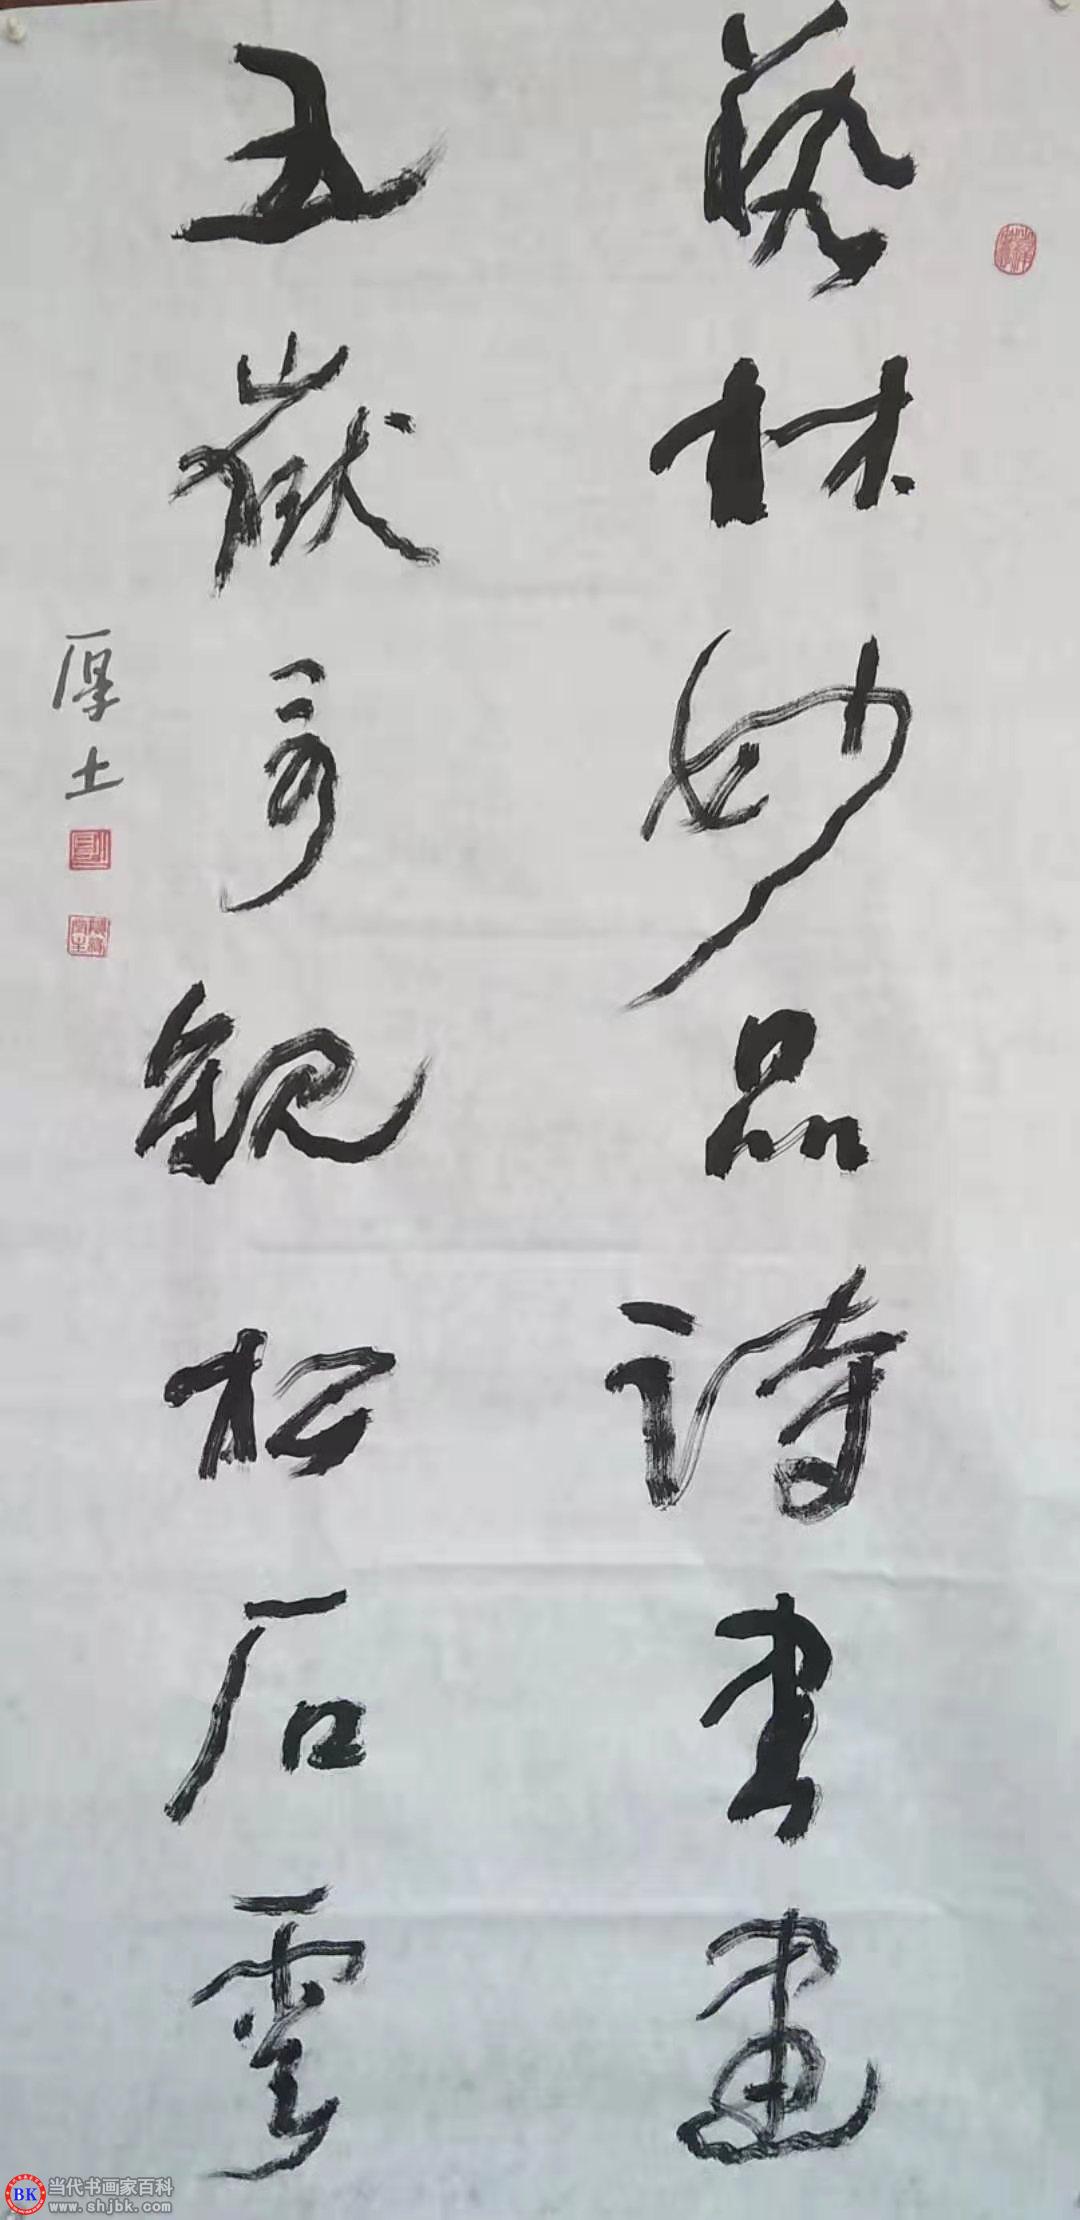 藝林妙品詩書畫
五嶽奇觀松石雲
厚土
当代书画家百科
www.shjbk.com
BK